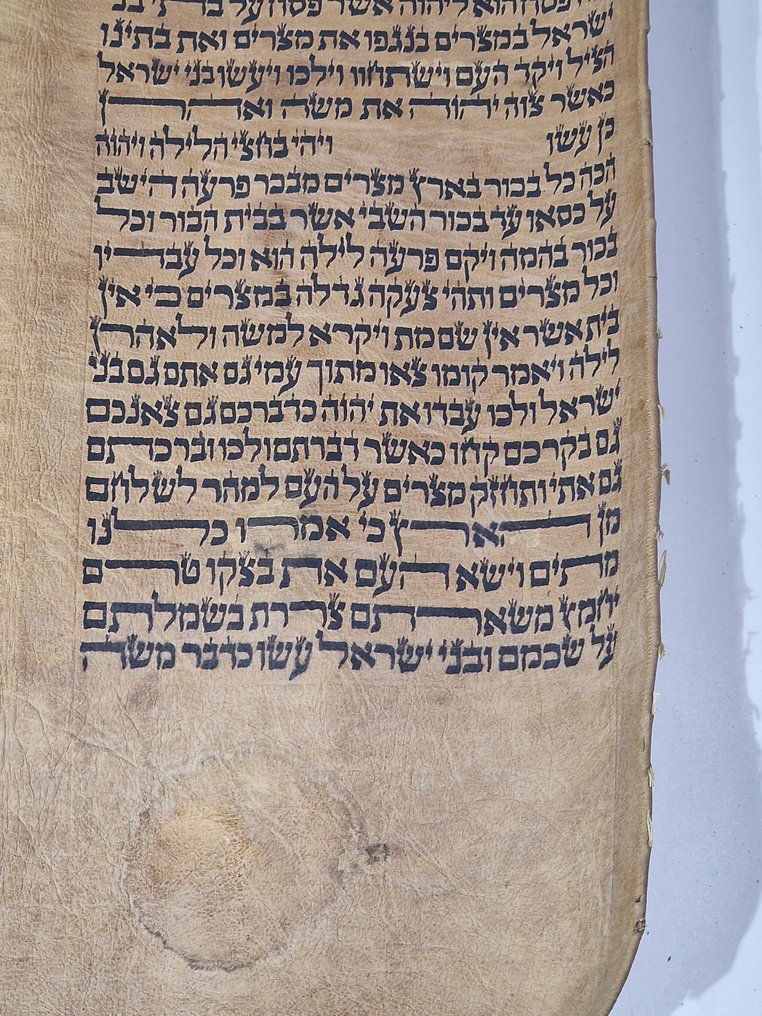 פסח הוא ליהוה אשר פסח על בתי בני
ישראל במצרים בנגפו את מצרים ואת בתינו
הציל ויקד העם וישתחוו וילכו ויעשו בני ישראל
כאשר צוה יהוה את משה ואהרן
כן עשו ויהי בחצי הלילה ויהוה
הכה כל בכור בארץ מצרים מבכר פרעה הישב
על כסאו עד בכור השבי אשר בבית הבור וכל
בכור בהמה ויקם פרעה לילה הוא וכל עבדיו
וכל מצרים ותהי צעקה גדלה במצרים כי אין
בית אשר אין שם מת ויקרא למשה ולאהרן
לילה ויאמר קומו צאו מתוך עמי גם אתם גם בני
ישראל ולכו עבדו את יהוה כדברכם גם צאנכם
גם בקרכם קחו כאשר דברתם ולכו וברכתם
גם אתי ותחזק מצרים על העם למהר לשלחם
מן הארץ כי אמרו כלנו
מתים וישא העם את בצקו טרם
יחמץ משארתם צררת בשמלתם
על שכמם ובני ישראל עשו כדבר משה